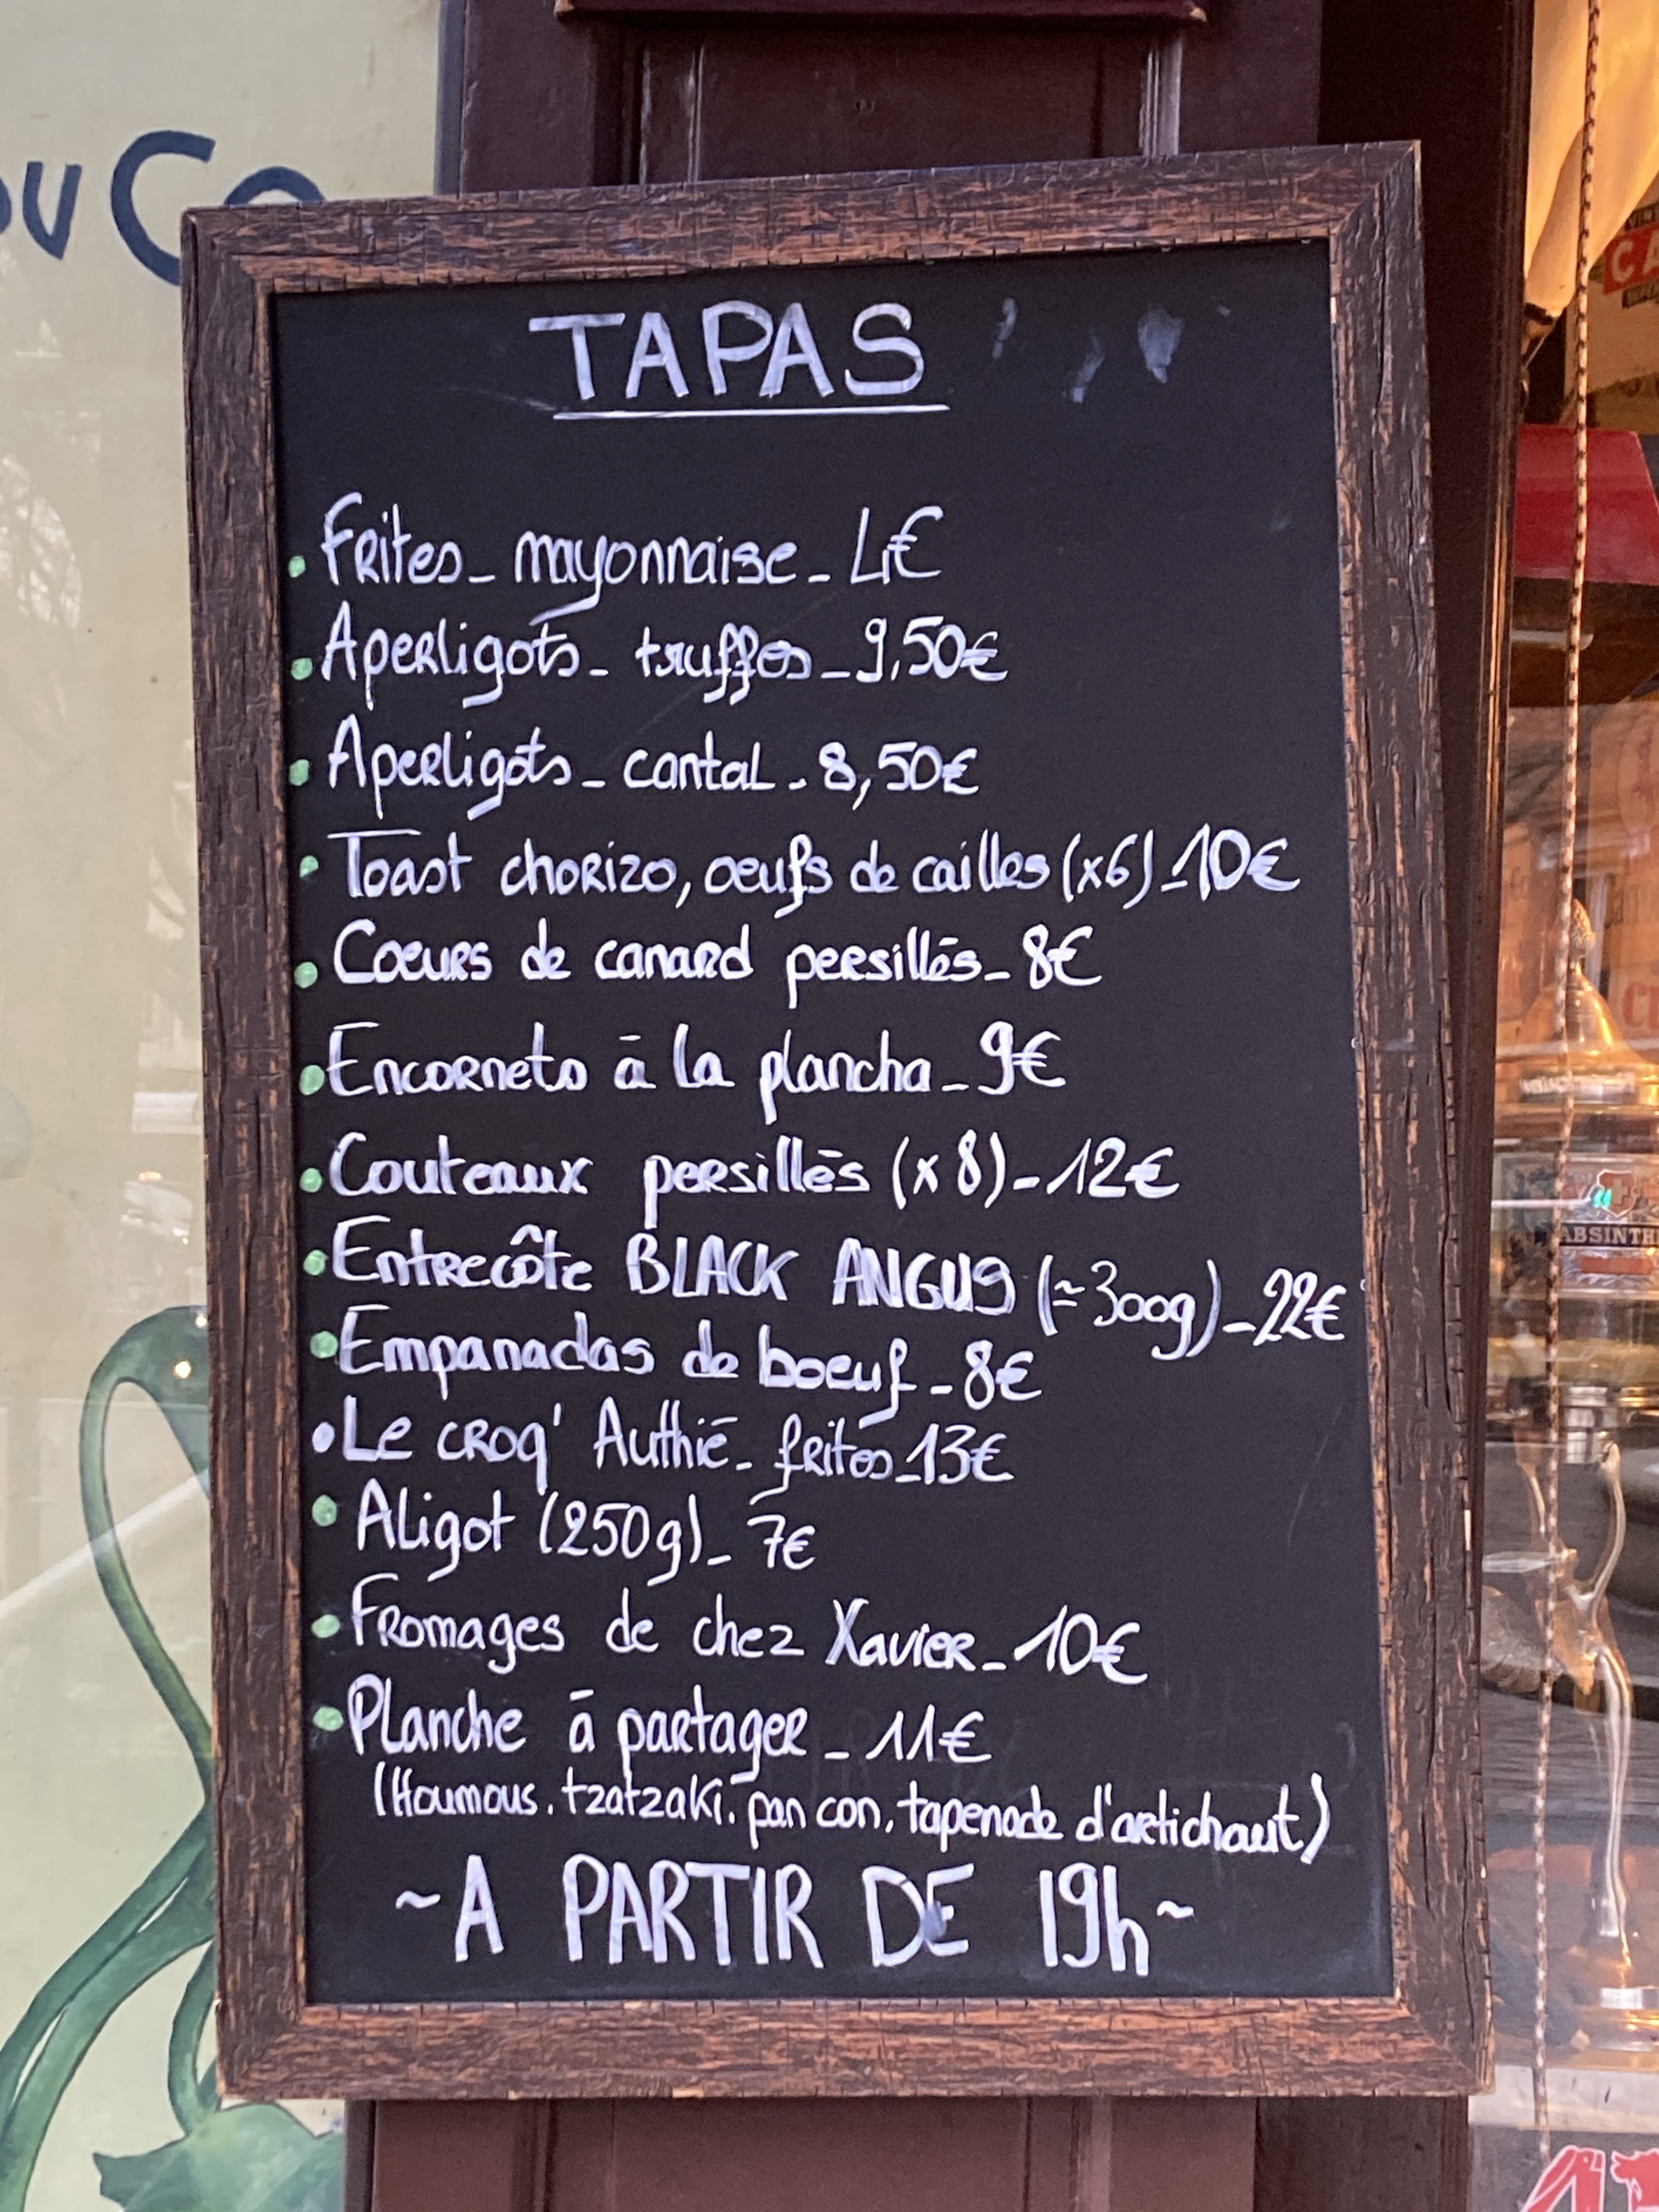 OU Co
TAPAS
• Frites - mayonnaise - 4€
• Aperligots - truffes - 9,50€
• Aperligots - cantal - 8,50€
• Toast chorizo, oeufs de cailles (x6) - 10€
• Coeurs de canard persillés - 8€
• Encornets à la plancha - 9€
• Couteaux persillés (x8) - 12€
• Entrecôte BLACK ANGUS (≈300g) - 22€
• Empanadas de boeuf - 8€
• Le croq' Authié - frites - 13€
• Aligot (250g) - 7€
• Fromages de chez Xavier - 10€
• Planche à partager - 11€
(Houmous. tzatzaki. pan con, tapenade d'artichaut)
~ A PARTIR DE 19h ~
ABSINTHE